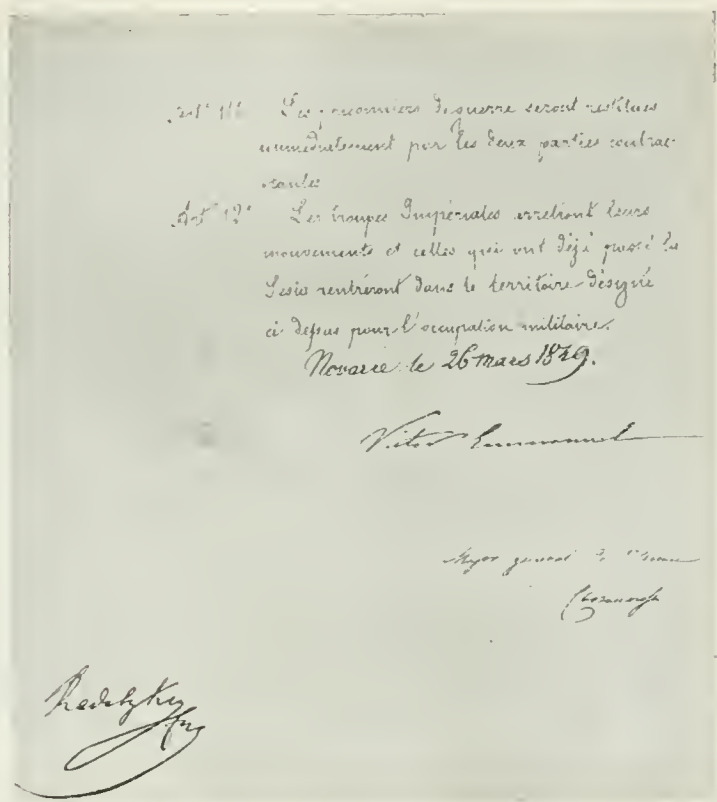 Art. 11. Les prisonniers de guerre seront restitues
immédiatement par les deux parties contrac-
tantes
Art. 12. Les troupes Impériales arrêtront leurs
mouvements et celles qui ont déjà passé la
Sesia rentréront dans le territoire désigné
ci depus pour l'occupation militaire.
Novarre le 26 mars 1849.
Victor Emmanuel
Major general de l'Armee
Chrzanowski
Radetzky